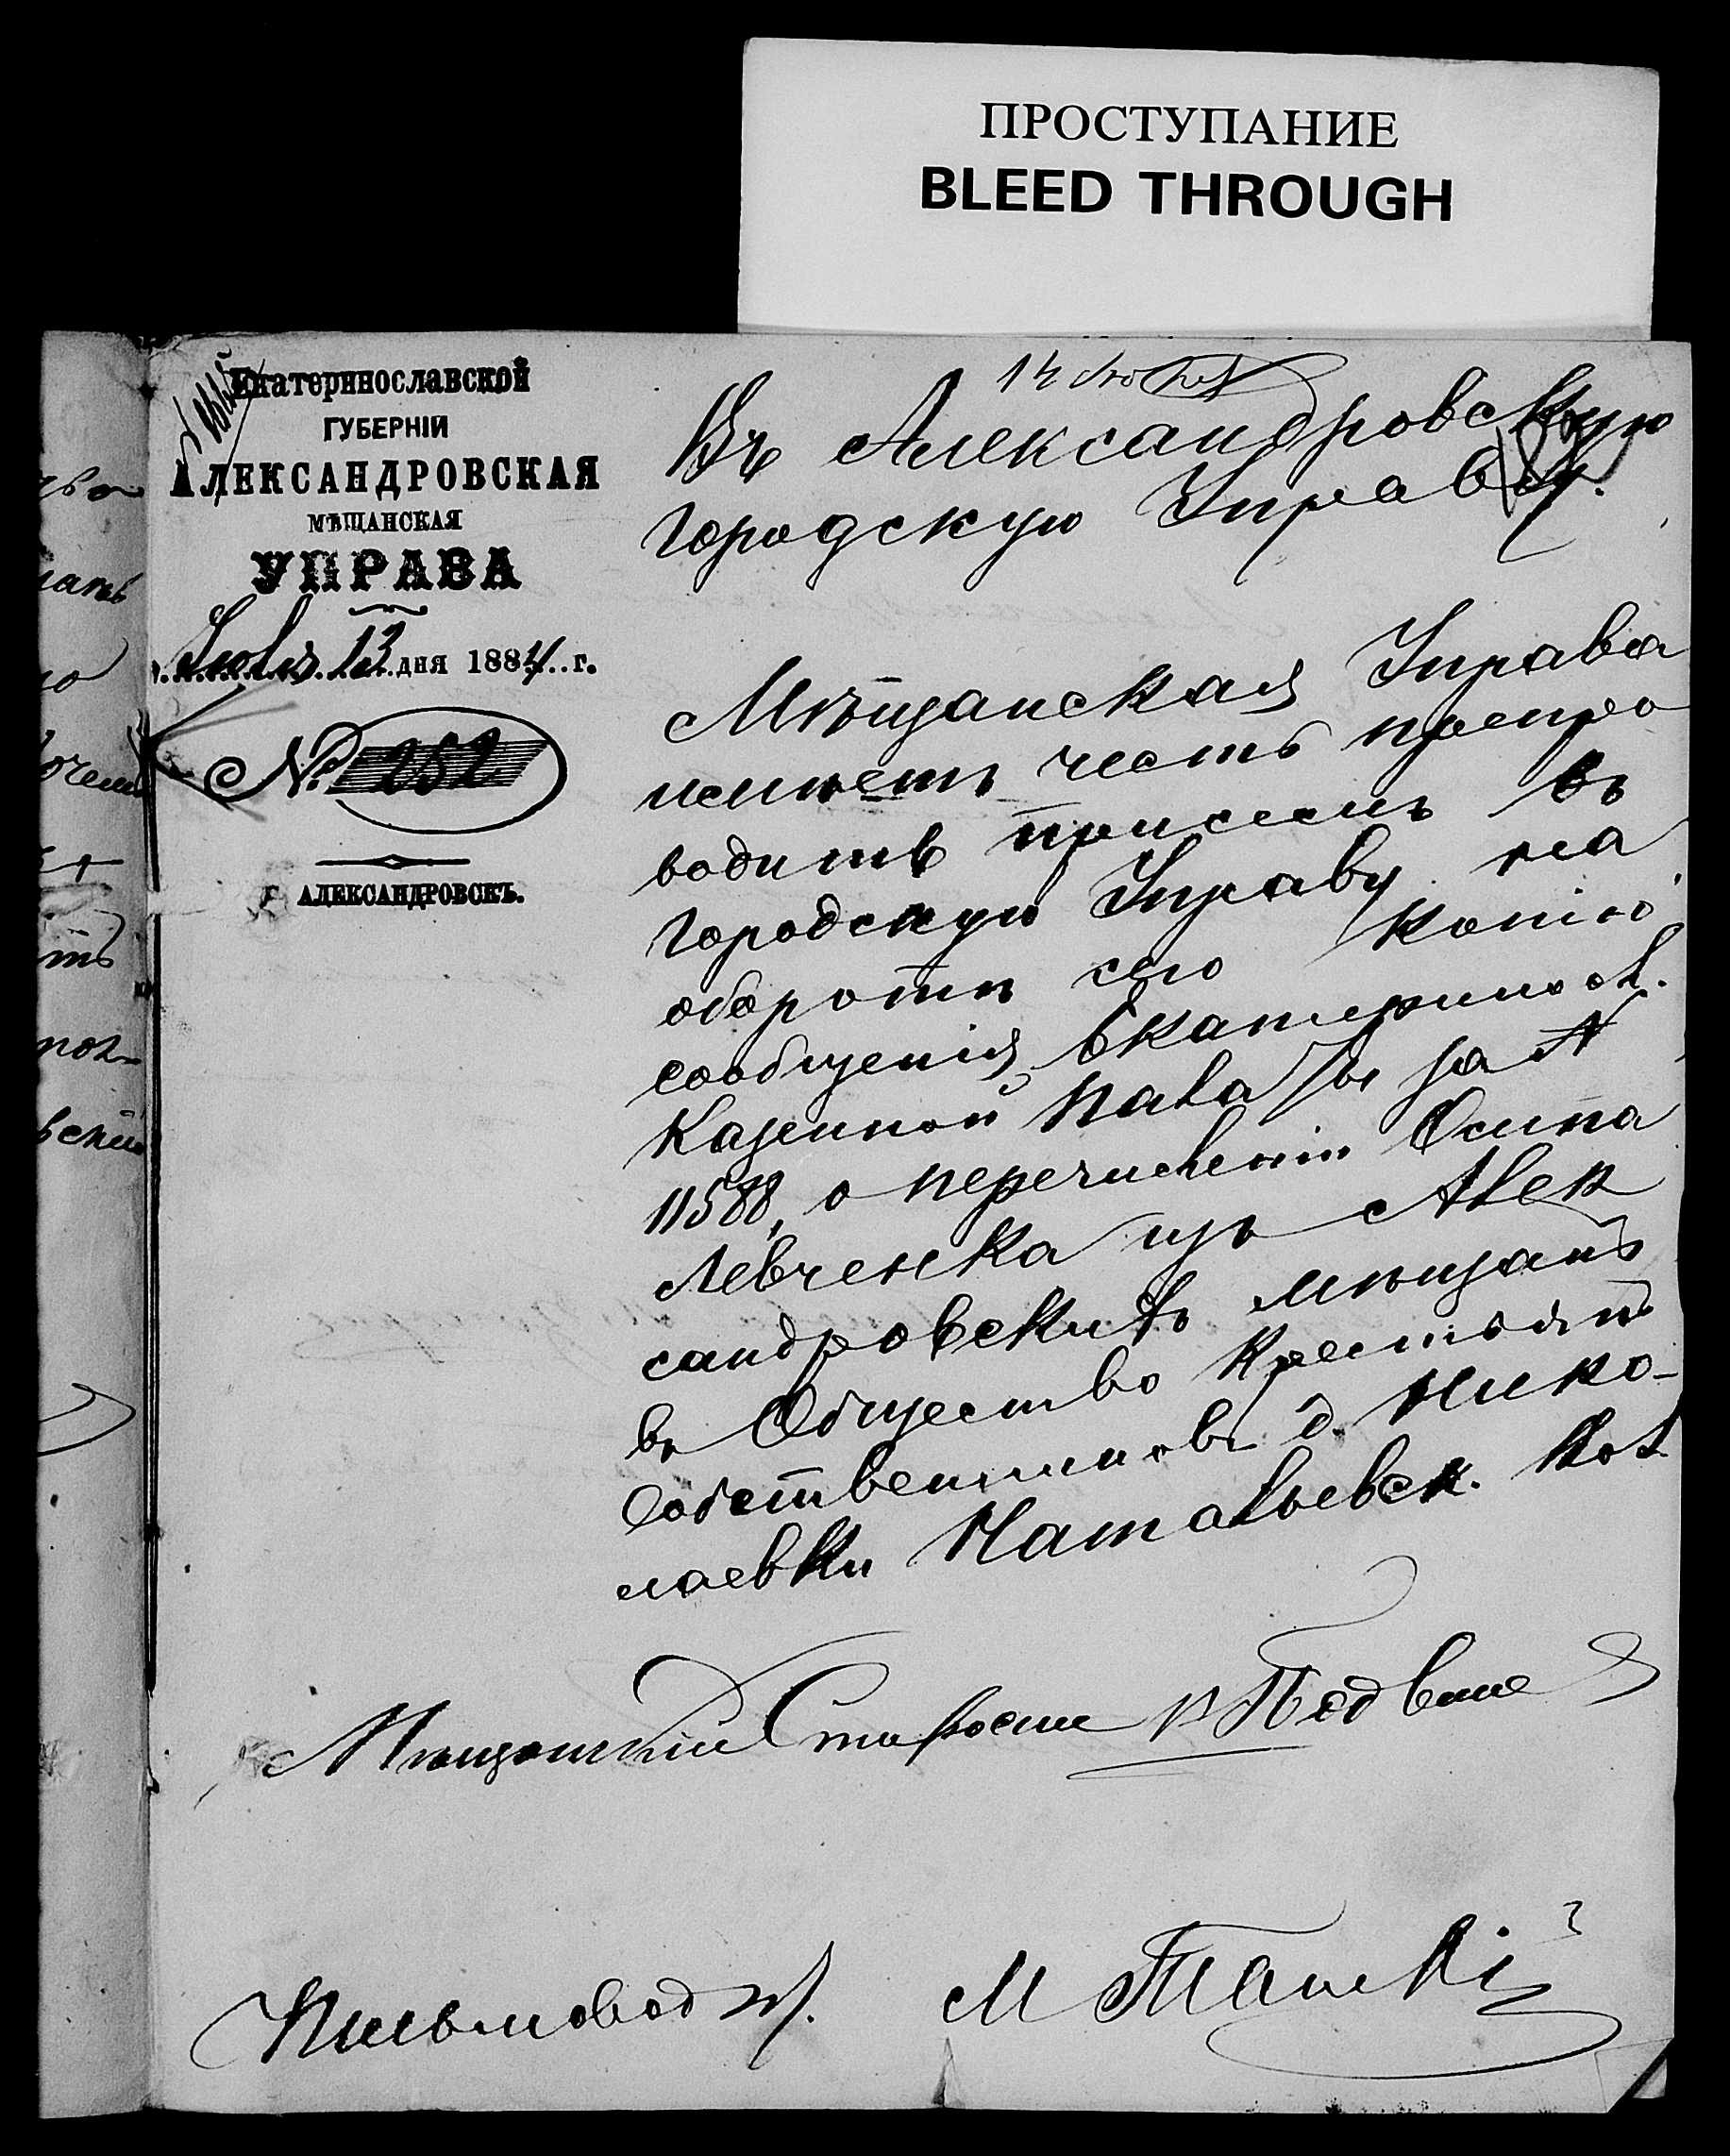 ПРОСТУПАНИЕ
BLEED THROUGH
Екатеринославской
ГУБЕРНІИ
АЛЕКСАНДРОВСКАЯ
МѢЩАНСКАЯ
УПРАВА
Іюля 13 дня 1884 г.
№ 252
г. АЛЕКСАНДРОВСКЪ.
14 Іюля
Въ Александровскую
Городскую Управу.
Мѣщанская Управа
имѣетъ честь препро
водить при семъ въ
Городскую Управу на
оборотѣ сего копію
сообщенія Екатериносл.
Казенной Палаты за №
11588, о перечисленіи Осипа
Левченка изъ Алек
сандровскихъ мѣщанъ
въ Общество Крестьянъ
Собственниковъ д. Нико-
лаевки Натальевск. Вол.
Мѣщанскій Староста
Письмоводит.
М